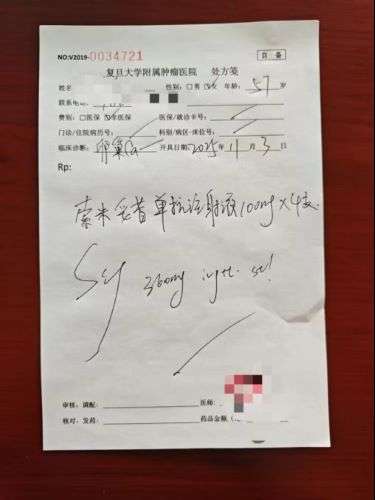 NO:V2019-0034721 自备
复旦大学附属肿瘤医院 处方笺
姓名 性别:□男 女 年龄:57岁
联系电话
费别:□医保 非医保 医保/就诊卡号:
门诊/住院病历号: 科别/病区-床位号:
临床诊断:卵巢Ca 开具日期2025年11月03日
Rp:
索米妥昔单抗注射液100mg×4支
Sig 360mg ivgtt. st!
审核、调配: 医师:
核对、发药: 药品金额